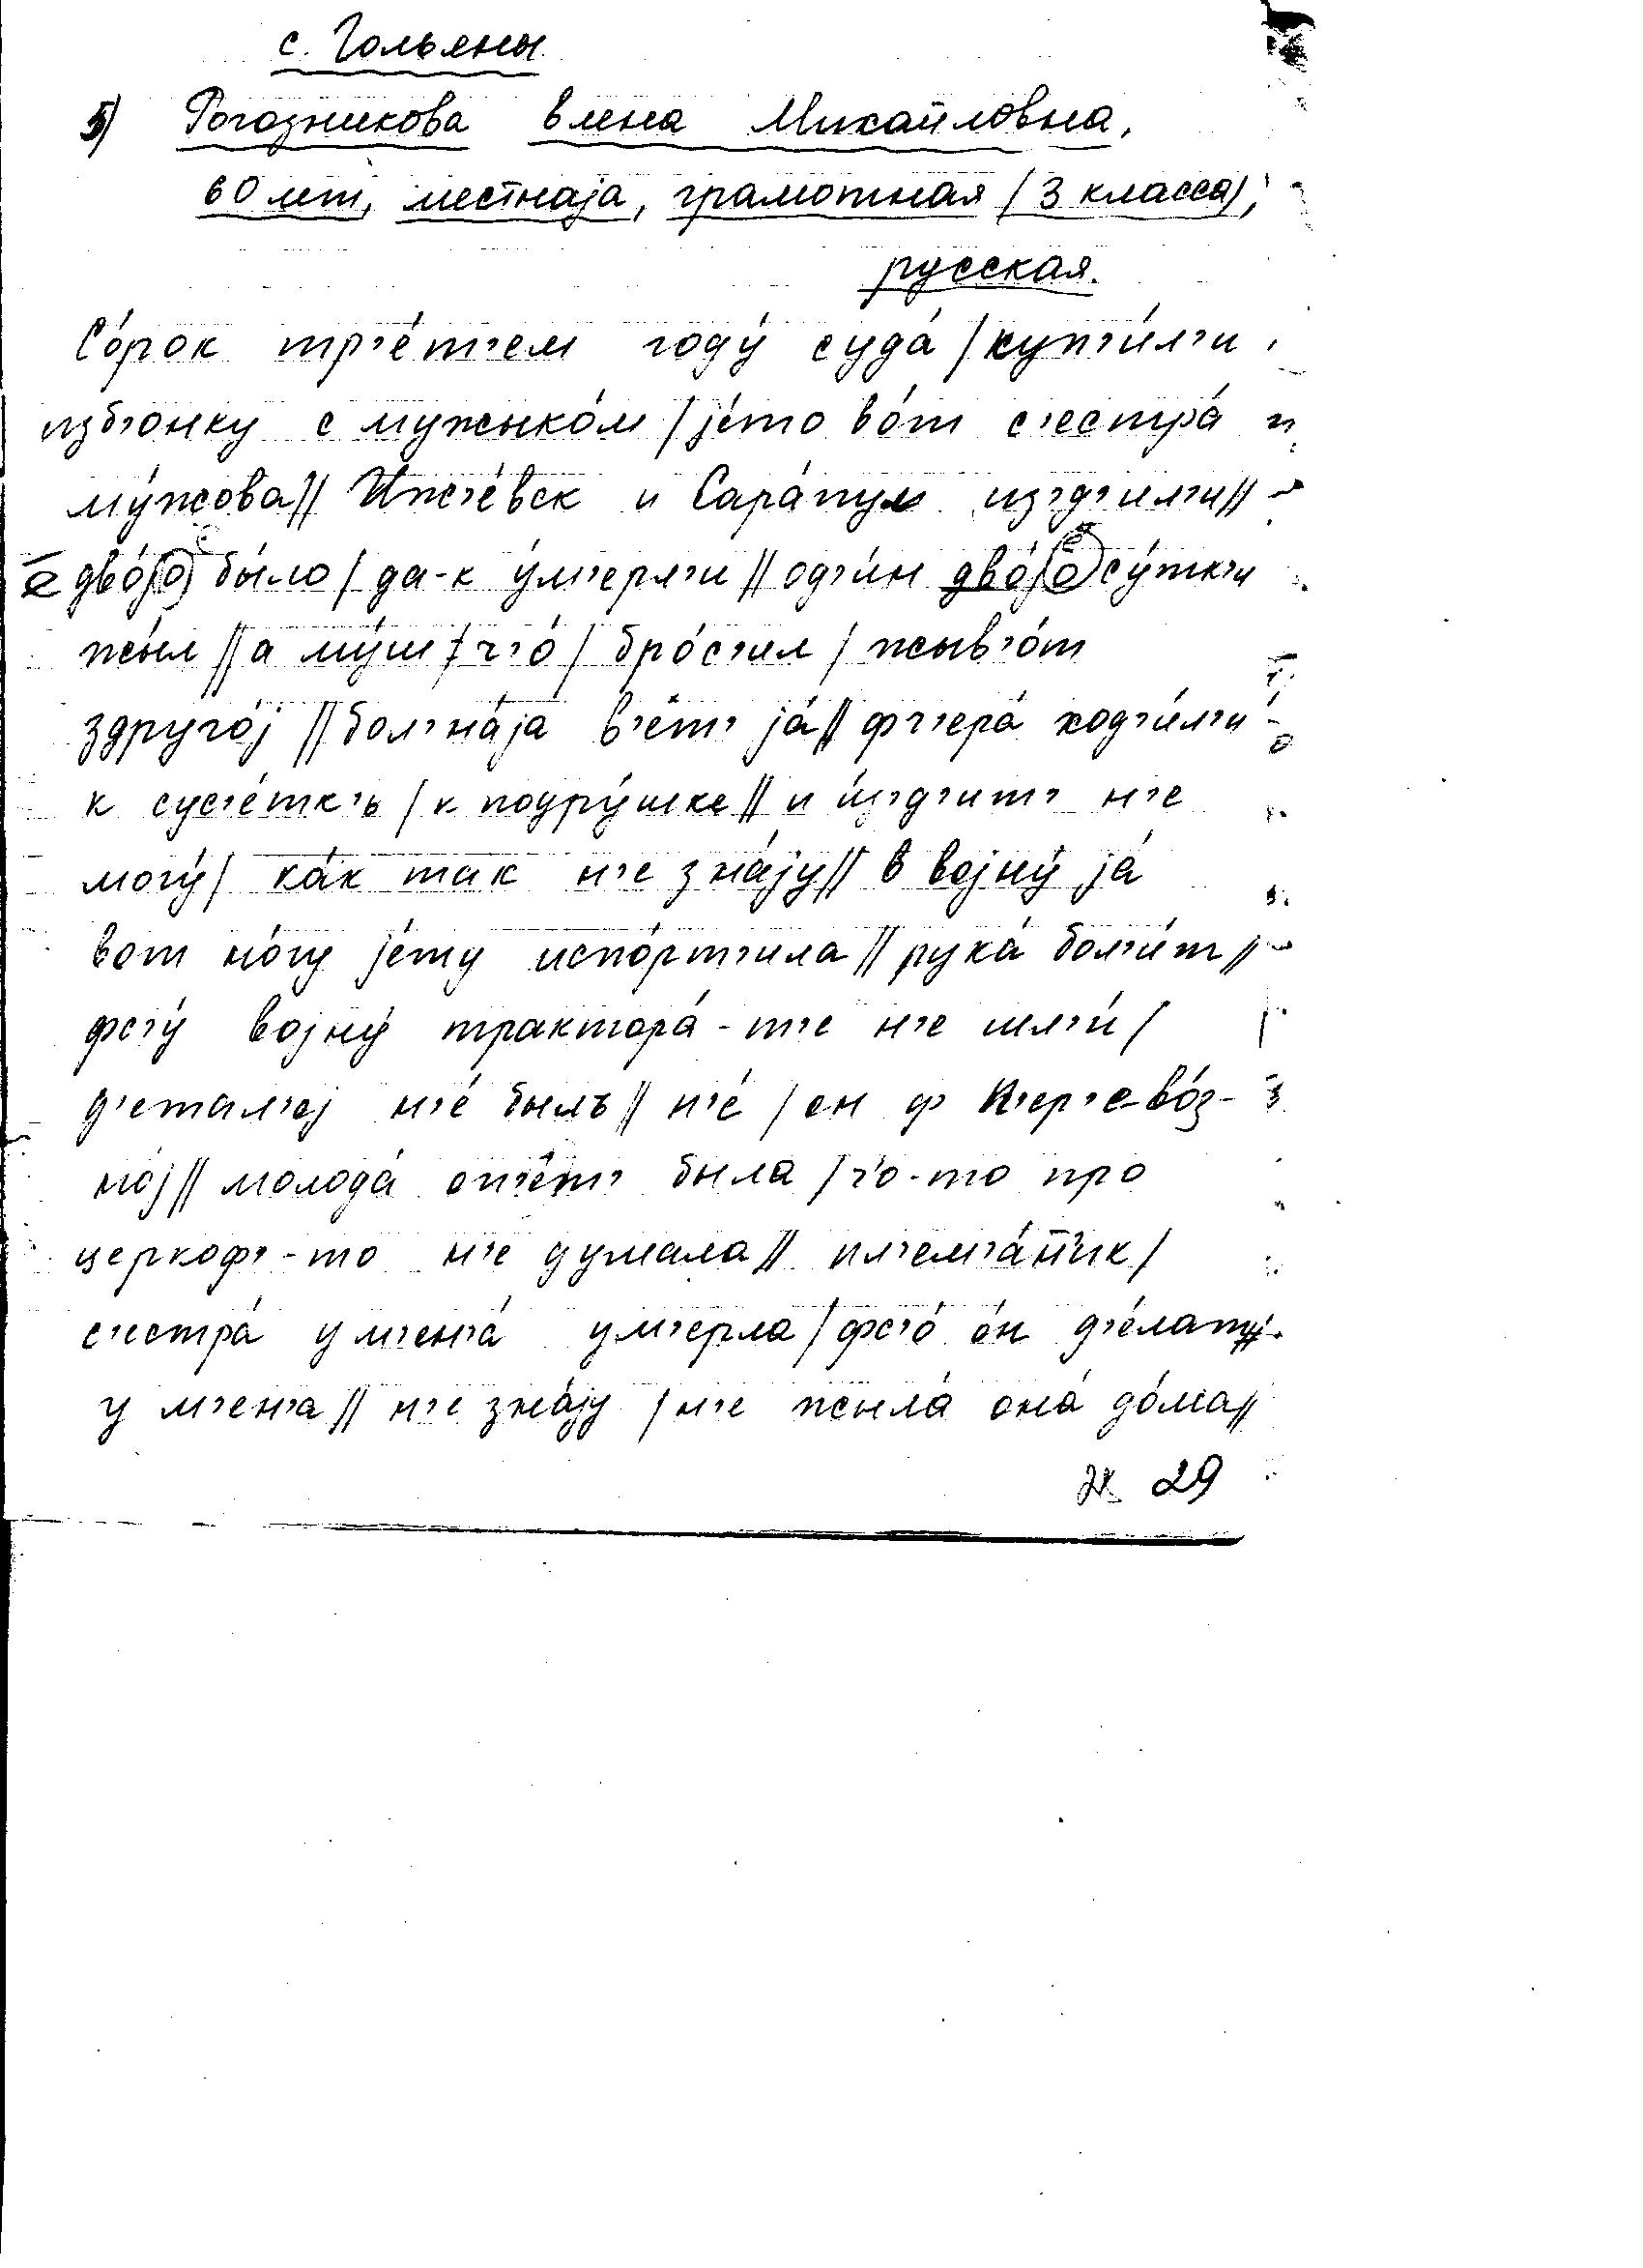 с. Гольяны
5) Рогозникова Елена Михайловна,
60 лет, местнаjа, грамотная (3 класса),
русская.
Со́рок тр'е́т'ем году́ суда́ / куп'и́л'и
изб'онку с мужыко́м / jе́то во́т с'естра́
му́жова // Иж'е́вск и Сара́пул из'д'ил'и //
дво́jо бы́ло / да-к у́м'ерл'и // од'и́н дво́jо су́тк'и
жы́л // а му́ш / ч'о́ / бро́с'ил / жыв'о́т
здруго́j // бол'на́jа в'е́т' jа́ // фч'ера́ ход'и́л'и
к сус'е́тк'ь / к подру́шке // и и́з'д'ит' н'е
могу́ / ка́к так н'е зна́jу // в воjну́ jа́
вот но́гу jе́ту испо́рт'ила // рука́ бол'и́т //
фс'у́ воjну́ трактора́-т'е н'е шл'и́ /
д'етал'еj н'е́ былъ // н'е́ / он ф П'ер'ево́з-
ноj // молода́ оп'е́т' была / ч'о-то про
церкоф'-то н'е думала // пл'ем'а́н'ик /
с'естра́ у м'ен'а́ ум'ерла / фс'о́ о́н д'е́лат
у м'ен'а // н'е зна́jу / н'е жыла́ она́ до́ма //
29